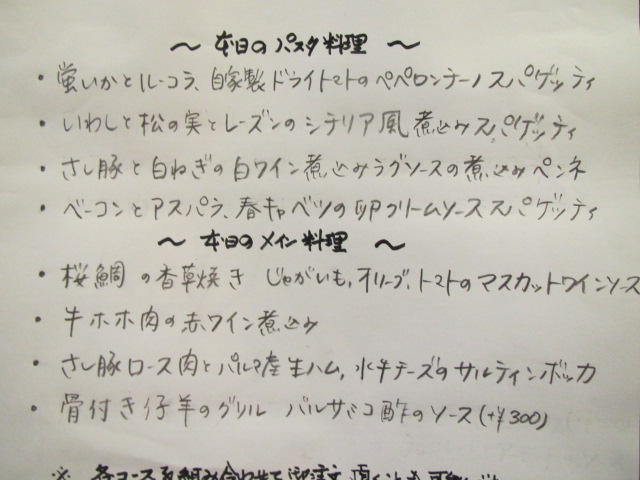 〜 本日のパスタ料理 〜
・蛍いかとルーコラ、自家製ドライトマトのペペロンチーノスパゲッティ
・いわしと松の実とレーズンのシチリア風煮込みスパゲッティ
・さし豚と白ねぎの白ワイン煮込みラグソースの煮込みペンネ
・ベーコンとアスパラ、春キャベツの卵クリームソーススパゲッティ
〜 本日のメイン料理 〜
・桜鯛の香草焼き じゃがいも、オリーブ、トマトのマスカットワインソース
・牛ホホ肉の赤ワイン煮込み
・さし豚ロース肉とパルマ産生ハム、水牛チーズのサルティンボッカ
・骨付き仔羊のグリル バルサミコ酢のソース(+¥300)
※ 各コースを組み合わせて